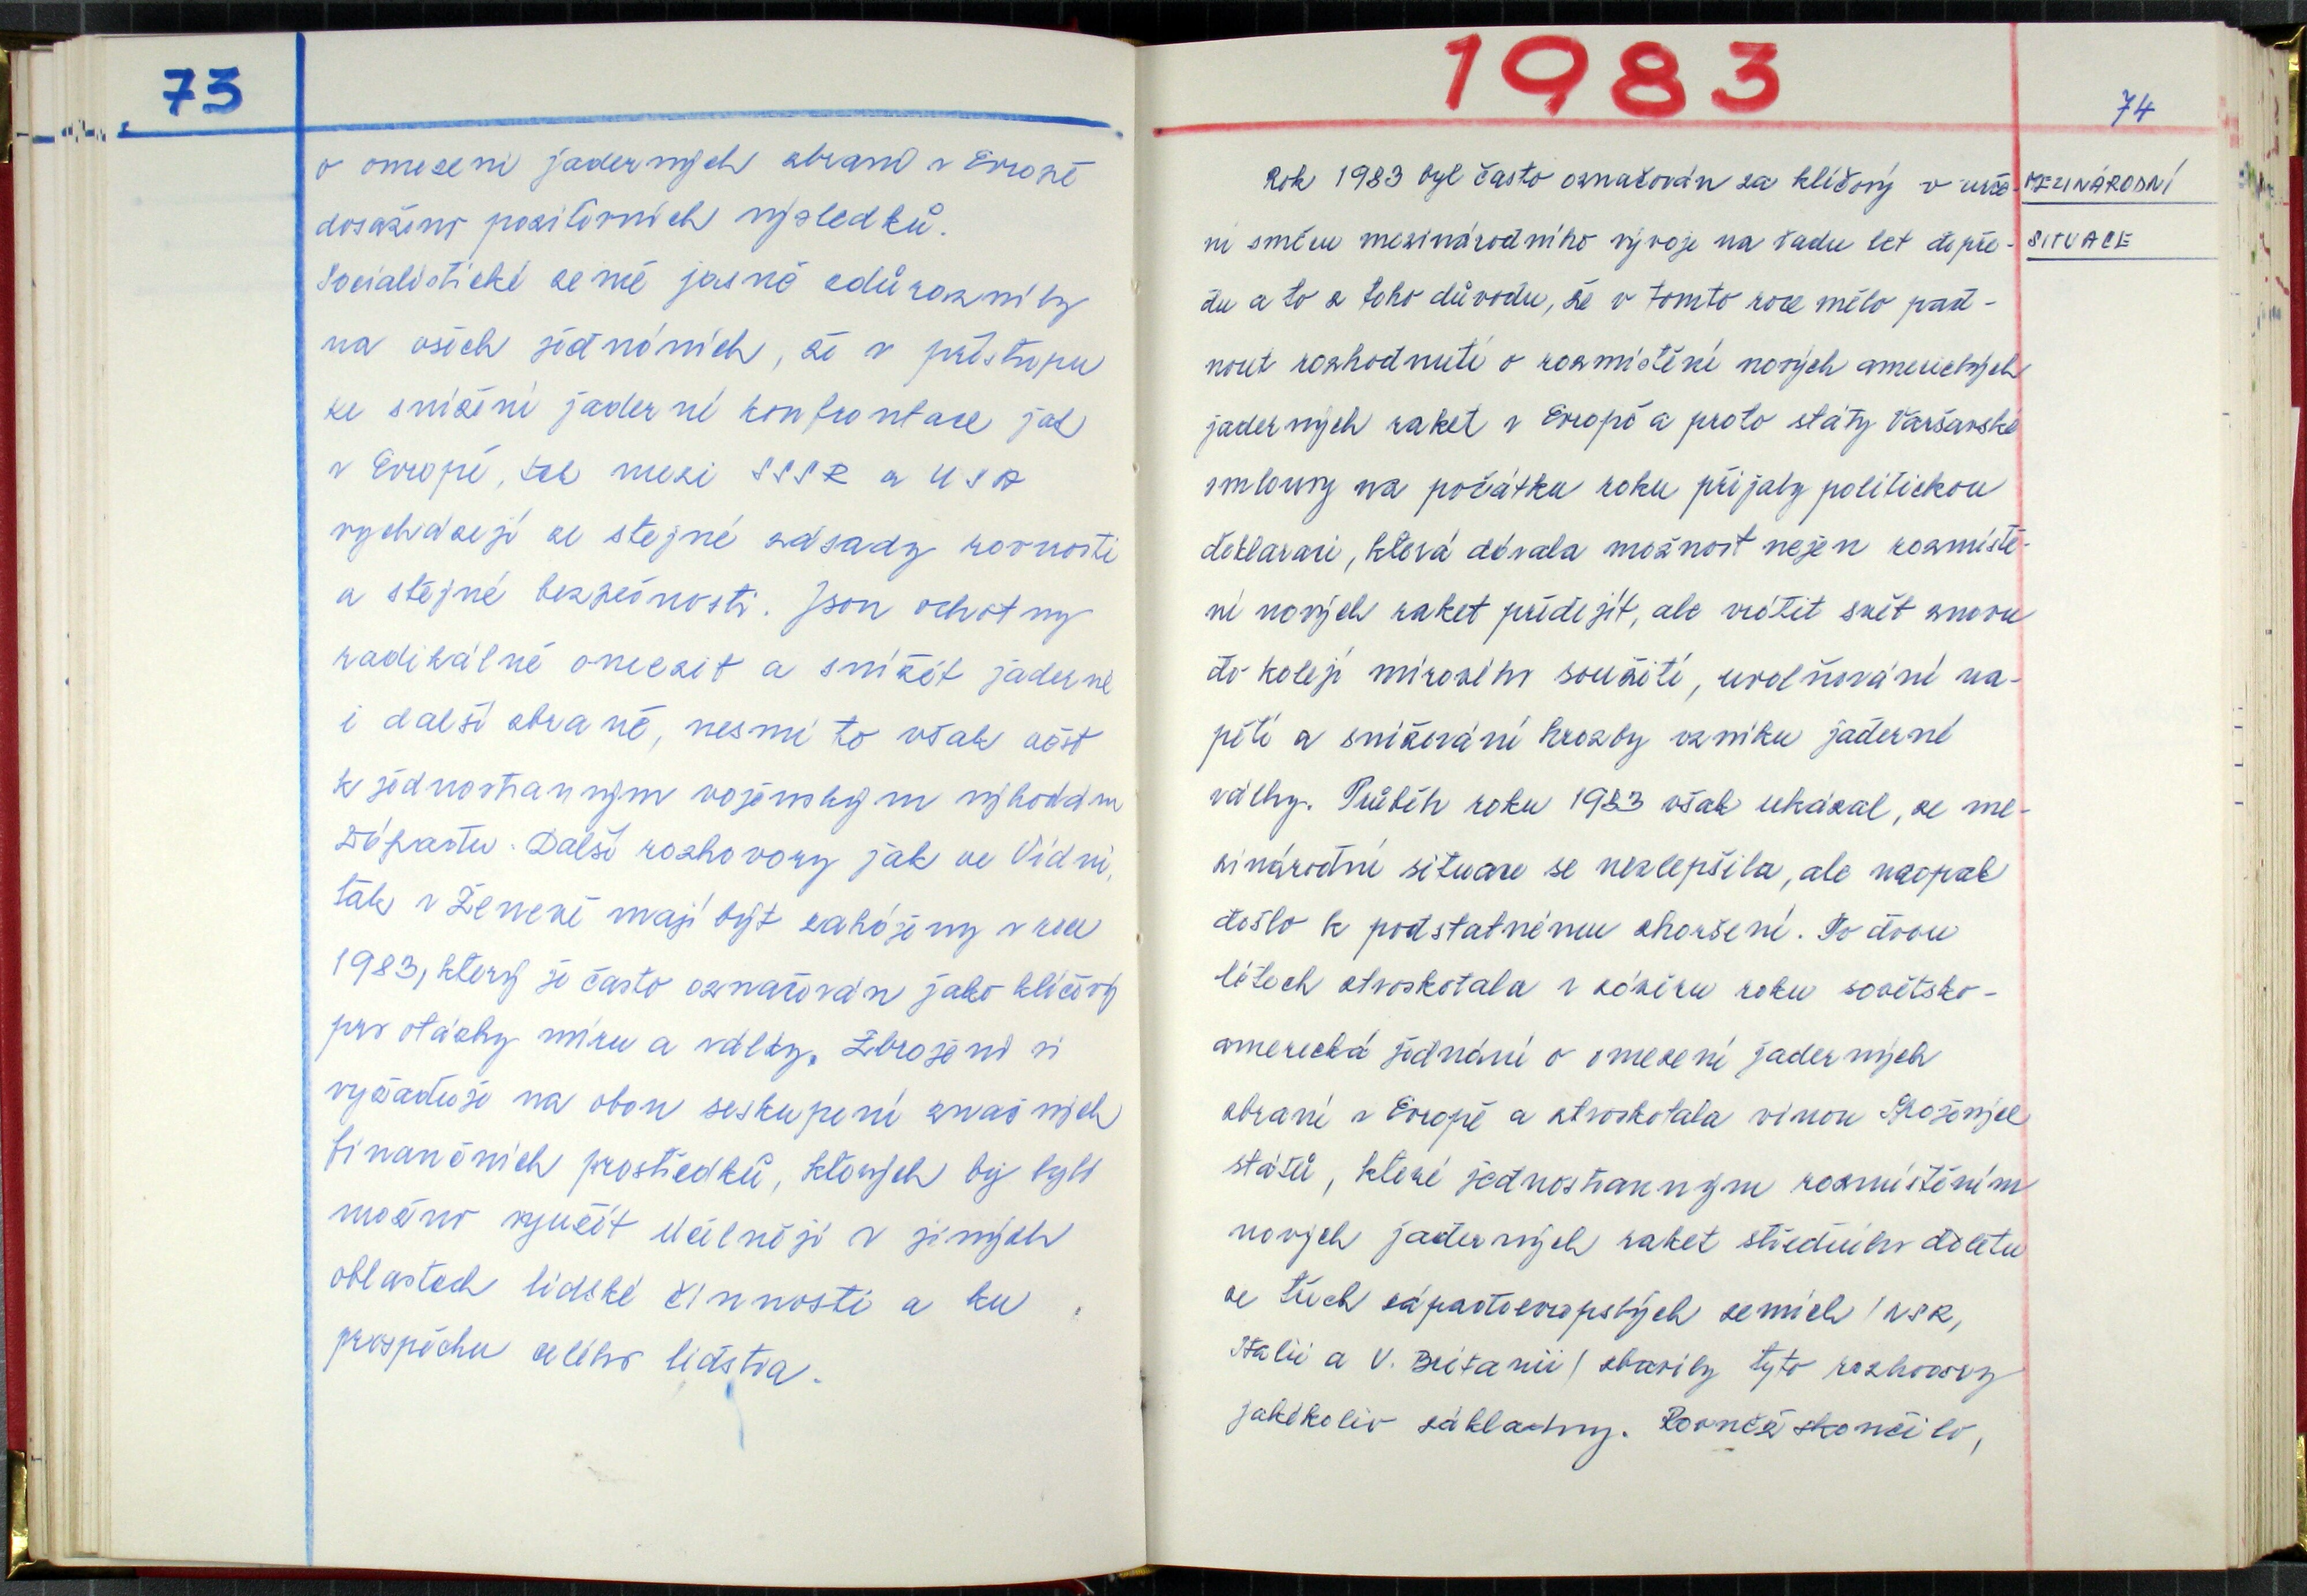 73
o omezení jaderných zbraní v Evropě
dosaženo pozitivních výsledků.
Socialistické země jasně zdůraznily
na všech jednáních, že v přístupu
ke snížení jaderné konfrontace jak
v Evropě, tak mezi SSSR a USA
vycházejí ze stejné zásady rovnosti
a stejné bezpečnosti. Jsou ochotny
radikálně omezit a snížit jaderné
i další zbraně, nesmí to však vést
k jednostranným vojenským výhodám
Západu. Další rozhovory jak ve Vídni,
tak v Ženevě mají být zahájeny v roce
1983, který je často označován jako klíčový
pro otázky míru a války. Zbrojení si
vyžaduje na obou seskupení značných
finančních prostředků, kterých by bylo
možno využít účelněji v jiných
oblastech lidské činnosti a ku
prospěchu celého lidstva.
1983
74
MEZINÁRODNÍ
SITUACE
Rok 1983 byl často označován za klíčový v urče-
ní směru mezinárodního vývoje na řadu let dopře-
du a to z toho důvodu, že v tomto roce mělo pad-
nout rozhodnutí o rozmístění nových amerických
jaderných raket v Evropě a proto státy Varšavské
smlouvy na počátku roku přijaly politickou
deklaraci, která dávala možnost nejen rozmístě-
ní nových raket předejít, ale vrátit svět znovu
do kolejí mírového soužití, uvolňování na-
pětí a snižování hrozby vzniku jaderné
války. Průběh roku 1983 však ukázal, ze me-
zinárodní situace se nezlepšila, ale naopak
došlo k podstatnému zhoršení. Po dvou
létech ztroskotala v závěru roku sovětsko-
americká jednání o omezení jaderných
zbraní v Evropě a ztroskotala vinou Spojených
států, které jednostranným rozmístěním
nových jaderných raket středního doletu
ve třech západoevropských zemích /NSR,
Itálii a V. Británii/ zbavily tyto rozhovory
jakékoliv základny. Rovněž skončilo,